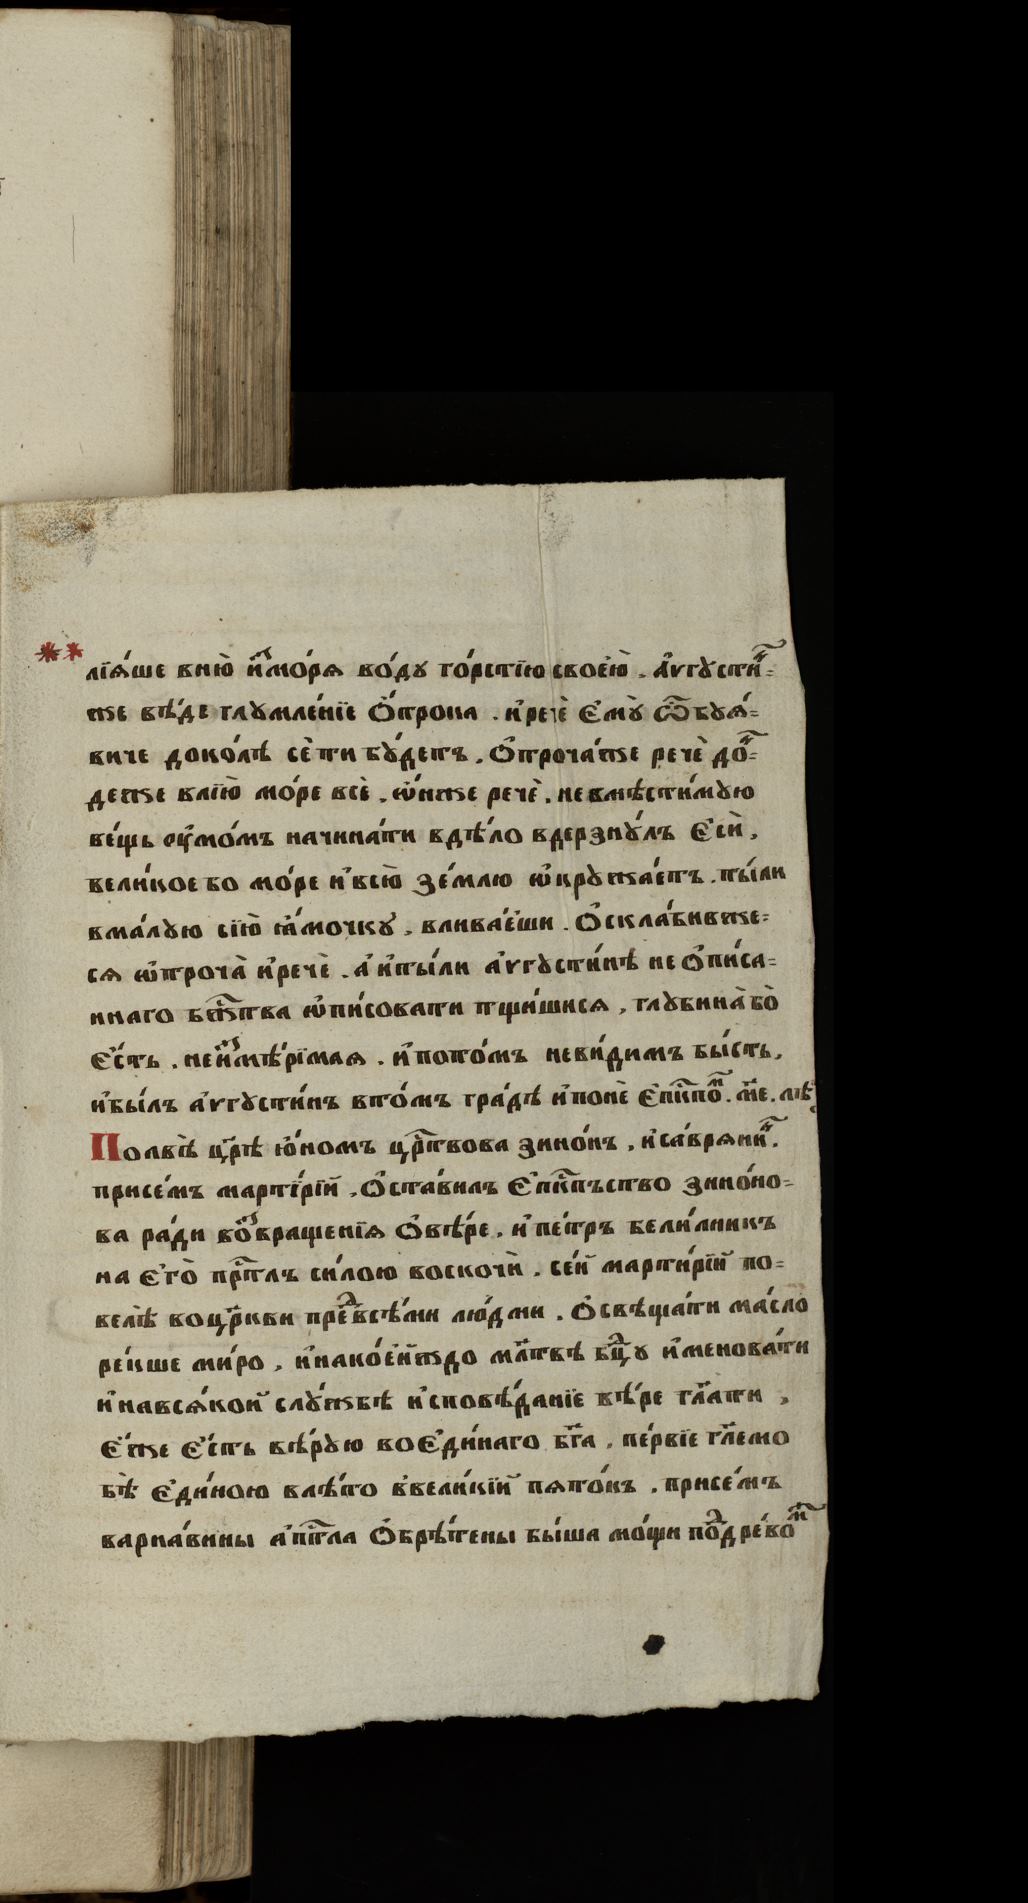 ** лїѧ́ше вню̀ и҆зⷥмо́рѧ во́ду го́рстїю своею̀ . а҆ѵгꙋсти́нⷩ҇=
же вѣ́де глꙋмле́нїе ѻ҆́трока . и҆речѐ є҆мꙋ̀ ѿ бꙋѧ́=
виче доко́лѣ сѐ ти бꙋ́детъ , ѻ҆троча́же речѐ до́нⷩ҇=
деже влїю̀ мо́ре всѐ . ѡ҆́нже речѐ . не вмѣсти́мꙋю
ве́щь ᲂу҆мо́мъ начина́ти вдѣ́ло вдерзнꙋ́лъ є҆сѝ ,
вели́кое бо мо́ре и҆всю̀ зе́млю ѡ҆крꙋжа́етъ . ты́ли
вма́лꙋю сїю̀ ꙗ҆́мочкꙋ , влива́еши . ѻ҆скла́бивже=
сѧ ѡ҆троча̀ и҆речѐ . а҆ и҆ты́ли а҆ѵгꙋсти́нѣ не ѻ҆пи́са=
ннаго бжⷭ҇тва ѡ҆пи́совати тщи́шисѧ , глꙋбина̀ бо̀
є҆́сть . неи҆зⷥмѣ́рїмаѧ . и҆пото́мъ неви́димъ бы́сть ,
и҆бы́лъ а҆ѵгꙋсти́нъ вто́мъ гра́дѣ и҆понѐ є҆пⷭ҇кпо́мⷨ . м҃е . лѣ́тⷮ
Полвѣ̀ цр҃ѣ ю҆́номъ црⷭ҇твова зино́нъ , и҆са́врѧни́нⷩ҇ .
присе́мъ марти́рїй , ѻ҆ста́вилъ є҆пⷭ҇кпъство зино́но=
ва ра́ди возⷥвращенїѧ ѻ҆вѣ́ре . и҆пе́тръ бели́лникъ
на є҆го̀ прⷭ҇тлъ си́лою воскочѝ . се́й марти́рїй по=
велѣ̀ воцр҃кви пре́дⷣвсѣ́ми лю́дми . ѻ҆свѣща́ти ма́сло
ре́кше ми́ро , и҆нако́ейждо мл҃твѣ бцⷣꙋ и҆менова́ти
и҆навсѧ́кой слꙋ́жбѣ и҆сповѣ́данїе вѣ́ре гл҃ати ,
є҆́же є҆́сть вѣ́рꙋю воє҆ди́наго бг҃а . пе́рвїе гл҃емо
бѣ̀ є҆ди́ною влѣ́то ввели́кїй пѧто́къ . присе́мъ
варна́вины а҆пⷭ҇тла ѻ҆брѣ́тены бы́ша мо́щи по́дⷣдре́вомⷨ